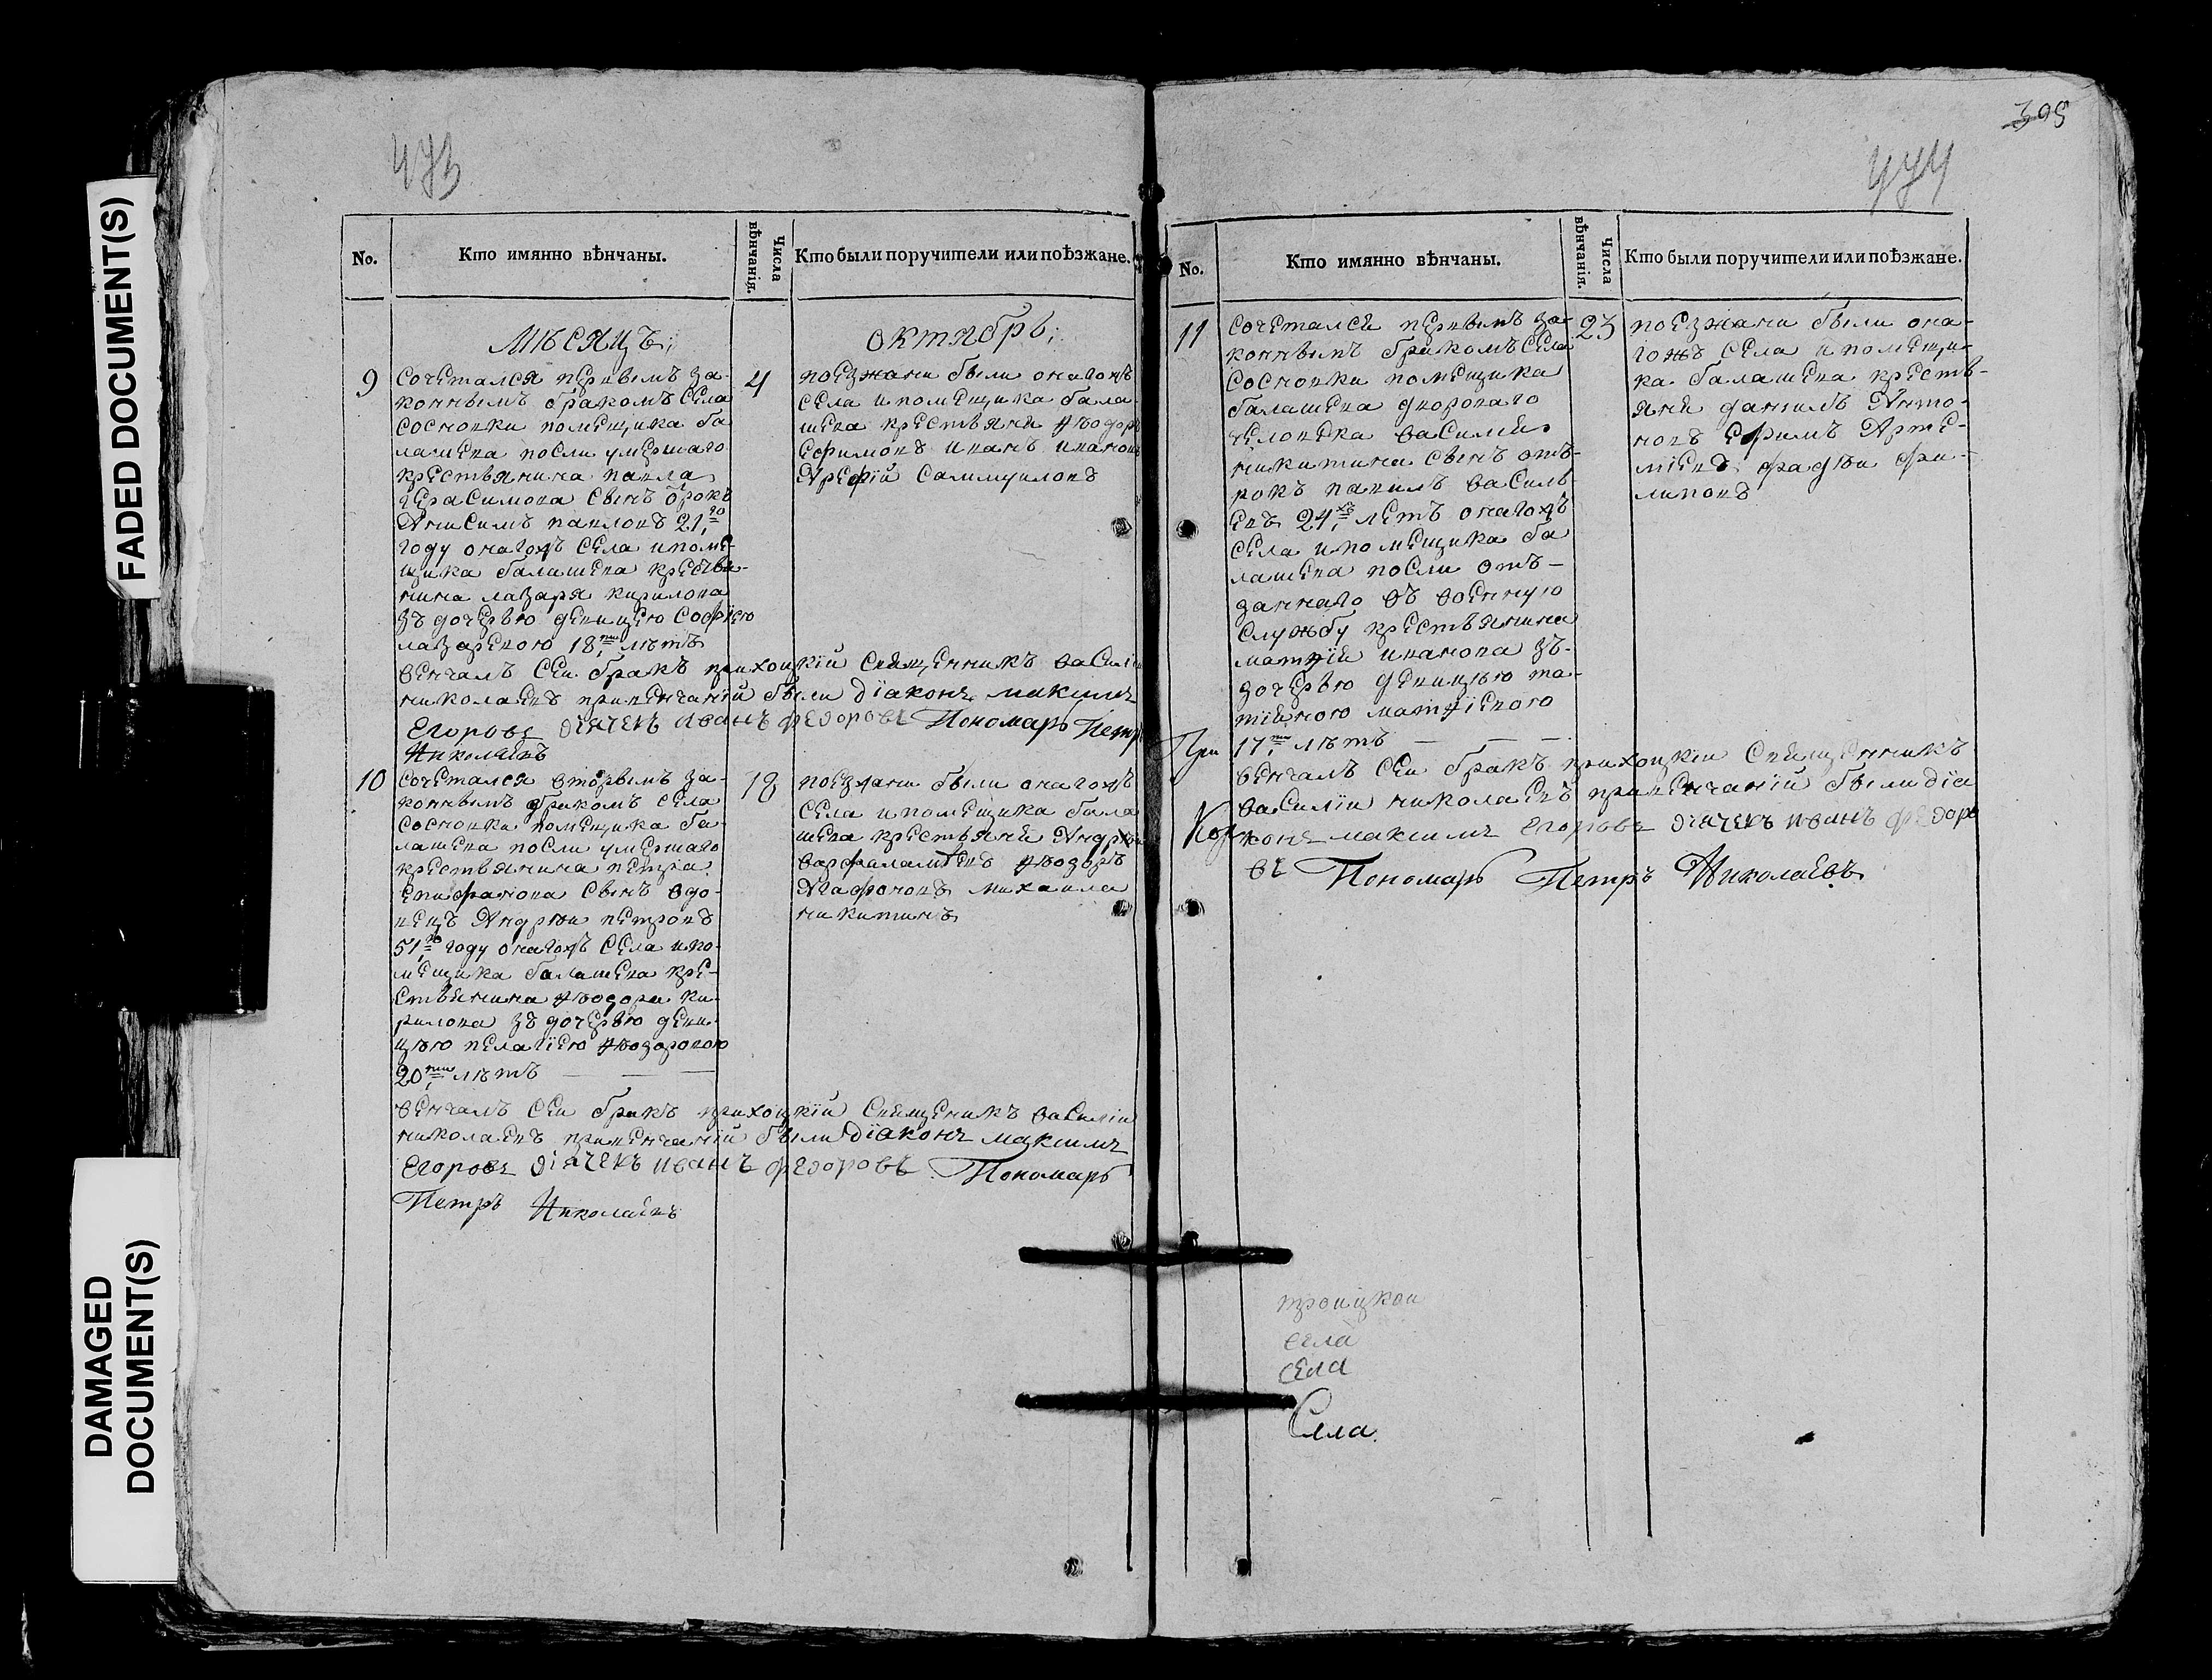 FADED DOCUMENT(S)
DAMAGED
DOCUMENT(S)
473
No.
Кто имянно вѣнчаны.
Числа
вѣнчанія.
Кто были поручители или поѣзжане.
Мѣсяцъ;
октябрь;
9
сочетался первымъ за-
коннымъ бракомъ села
сосновки помещика ба
лашева посли умершаго
крестьянина павла
герасимова сынъ отрокъ
Анисимъ павловъ 21,го
году онагожъ села и поме-
щика балашева крестья-
нина лазаря кирилова
зъ дочерью девицею софиею
лазаревою 18,ти лѣтъ
4
поезжани были онагожъ
села и помещика бала
шева крестьяня Ѳѣодоръ
Ефимовъ иванъ ивановъ
Арефій самимуиловъ
венчалъ сеи бракъ прихоцкій священникъ васили
николаевъ привенчаній были дїаконъ максимъ
Егоровъ дїячекъ иванъ федоровъ Пономарь Петръ
Николаевъ
10
сочетался вторымъ за-
коннымъ бракомъ села
сосновки помещика ба-
лашева посли умершаго
крестьянина петра
епифанова сынъ вдо-
вецъ Андрѣи петровъ
51,го году онагожъ села и по-
мещика балашева кре-
стьянина Ѳѣодора ки-
рилова зъ дочерью деви-
цѣю пелагїею Ѳѣодоровою
20,ти лѣтъ
18
поезжани были онагожъ
села и помещика бала
шева крестьяня Андрѣи
варфаламѣевъ Ѳѣодоръ
Агафоновъ михаила
никитинъ
венчалъ сеи бракъ прихоцкій священикъ василїи
николаевъ привенчаній были дїаконъ максимъ
Егоровъ дїячекъ иванъ федоровъ Пономарь
Петръ Николаевъ
395
474
No.
Кто имянно вѣнчаны.
Числа
вѣнчанія.
Кто были поручители или поѣзжане.
11
сочетался первымъ за-
коннымъ бракомъ села
сосновки помещика
балашева двороваго
человека василия
никитина сынъ отъ-
рокъ павилъ василь-
евъ 24,хъ летъ онагожъ
села и помещика ба
лашева посли отъ-
даннаго въ военную
службу крестьянина
матѳия иванова зъ-
дочерью девицѣю та-
тїяною матѳїевою
17,ти лѣтъ
23
поезжани были она-
гожъ села и помещи-
ка балашева кресть-
яня данилъ Анто-
новъ Ефимъ Арте-
мїевъ фадѣи фи-
липовъ
При
венчалъ сеи бракъ прихоцкїи священникъ
василїи николаевъ привенчаній были дїа
конъ максимъ Егоровъ дїячекъ иванъ федоро
въ Пономарь Петръ Николаевъ
троицкои
села
села
Села